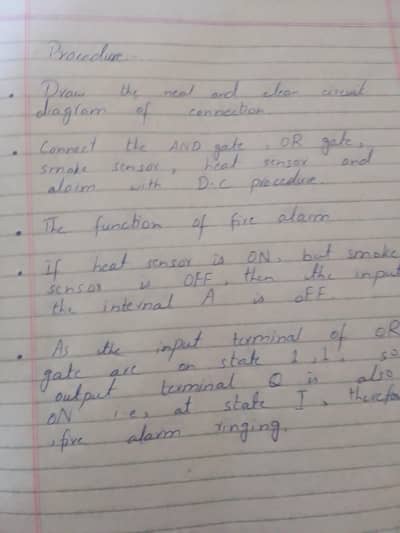 Procedure -
• Draw the neat and clear circuit
diagram of connection.
• Connect the AND gate, OR gate,
smoke sensor, heat sensor and
alarm with D.C procedure.
• The function of fire alarm
• If heat sensor is ON, but smoke
sensor is OFF, then the input
the internal A is OFF.
• As the input terminal of OR
gate are on state 1, 1, so
output terminal Q is also
ON i.e, at state I, therefo
, fire alarm ringing.